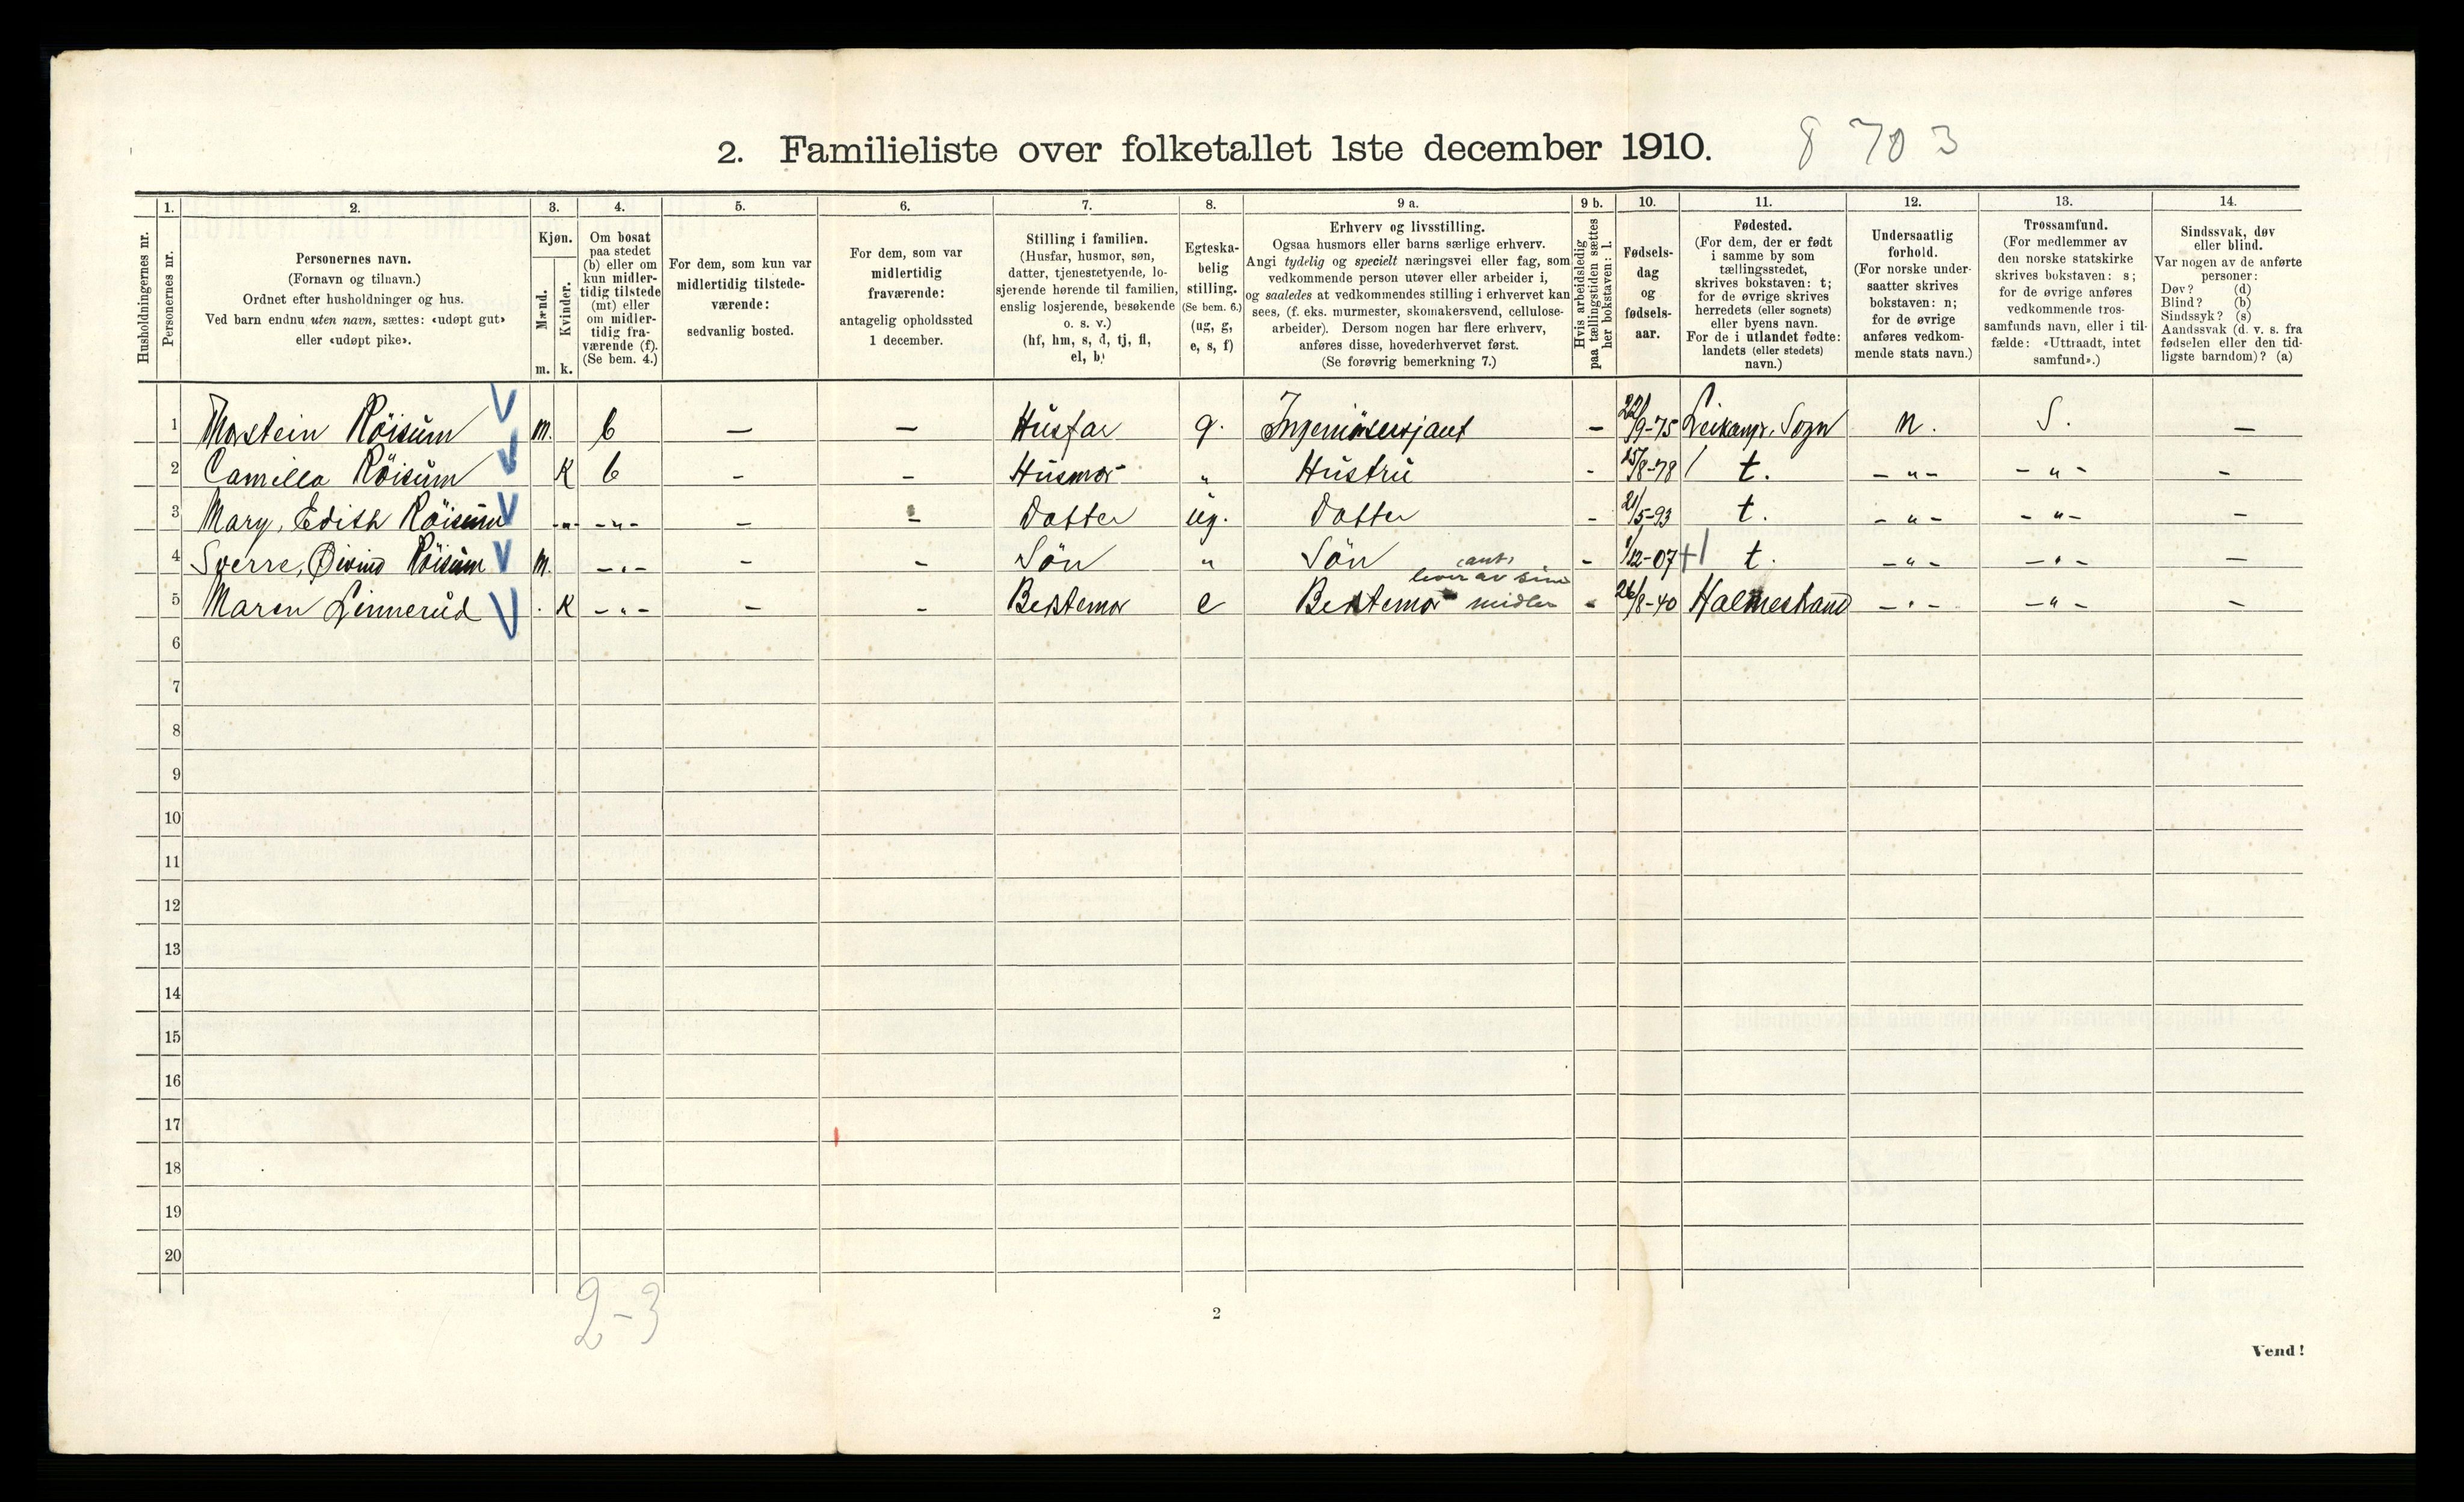 2. Familieliste over folketallet 1ste december 1910. 8 703
1. 2. 3. 4. 5. 6. 7. 8. 9 a. 9 b. 10. 11. 12. 13. 14.
Husholdningernes nr.
Personernes nr.
Personernes navn.
(Fornavn og tilnavn.)
Ordnet efter husholdninger og hus.
Ved barn endnu uten navn, sættes: «udøpt gut»
eller «udøpt pike».
Kjøn.
Mænd.
Kvinder.
m. k.
Om bosat
paa stedet
(b) eller om
kun midler-
tidig tilstede
(mt) eller
om midler-
tidig fra-
værende (f).
(Se bem. 4.)
For dem, som kun var
midlertidig tilstede-
værende:
sedvanlig bosted.
For dem, som var
midlertidig
fraværende:
antagelig opholdssted
1 december.
Stilling i familien.
(Husfar, husmor, søn,
datter, tjenestetyende, lo-
sjerende hørende til familien,
enslig losjerende, besøkende
o. s. v.)
(hf, hm, s, d, tj, fl,
el, b)
Egteska-
belig
stilling.
(Se bem. 6.)
(ug, g,
e, s, f)
Erhverv og livsstilling.
Ogsaa husmors eller barns særlige erhverv.
Angi tydelig og specielt næringsvei eller fag, som
vedkommende person utøver eller arbeider i,
og saaledes at vedkommendes stilling i erhvervet kan
sees, (f. eks. murmester, skomakersvend, cellulose-
arbeider). Dersom nogen har flere erhverv,
anføres disse, hovederhvervet først.
(Se forøvrig bemerkning 7.)
Hvis arbeidsledig
paa tællingstiden sættes
her bokstaven: l.
Fødsels-
dag
og
fødsels-
aar.
Fødested.
(For dem, der er født
i samme by som
tællingsstedet,
skrives bokstaven: t;
for de øvrige skrives
herredets (eller sognets)
eller byens navn.
For de i utlandet fødte:
landets (eller stedets)
navn.)
Undersaatlig
forhold.
(For norske under-
saatter skrives
bokstaven: n;
for de øvrige
anføres vedkom-
mende stats navn.)
Trossamfund.
(For medlemmer av
den norske statskirke
skrives bokstaven: s;
for de øvrige anføres
vedkommende tros-
samfunds navn, eller i til-
fælde: «Uttraadt, intet
samfund».)
Sindssvak, døv
eller blind.
Var nogen av de anførte
personer:
Døv? (d)
Blind? (b)
Sindssyk? (s)
Aandssvak (d. v. s. fra
fødselen eller den tid-
ligste barndom)? (a)
1 Thorstein Röisum m. b – – Husfar g. Ingeniörsersjant – 22/9-75 Leikanger, Sogn n. S. –
2 Camilla Röisum K b – – Husmor " Hustru – 15/8-78 t. -"- -"- –
3 Mary, Edith Röisum -"- -"- – – Datter ug. Datter – 21/5-93 t. -"- -"- –
4 Sverre, Øivind Röisum m. -"- – – Sön " Sön – 1/12-07 t. -"- -"- –
lever av sine
5 Maren Linnerud K -"- – – Bestemor e Bestemor midler – 26/8-40 Holmestrand -"- -"- –
6
7
8
9
10
11
12
13
14
15
16
17
18
19
20
2-3
2
Vend!